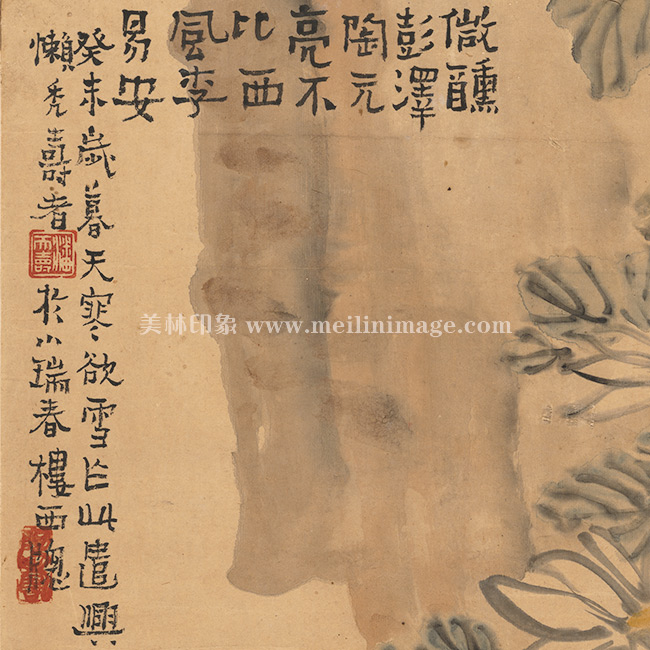 微醺
彭澤
陶元
亮不
比西
風李
易安
癸未歲暮天寒欲雪作此遣興
懶禿壽者於小瑞春樓西窗
潘天壽
美林印象 www.meilinimage.com